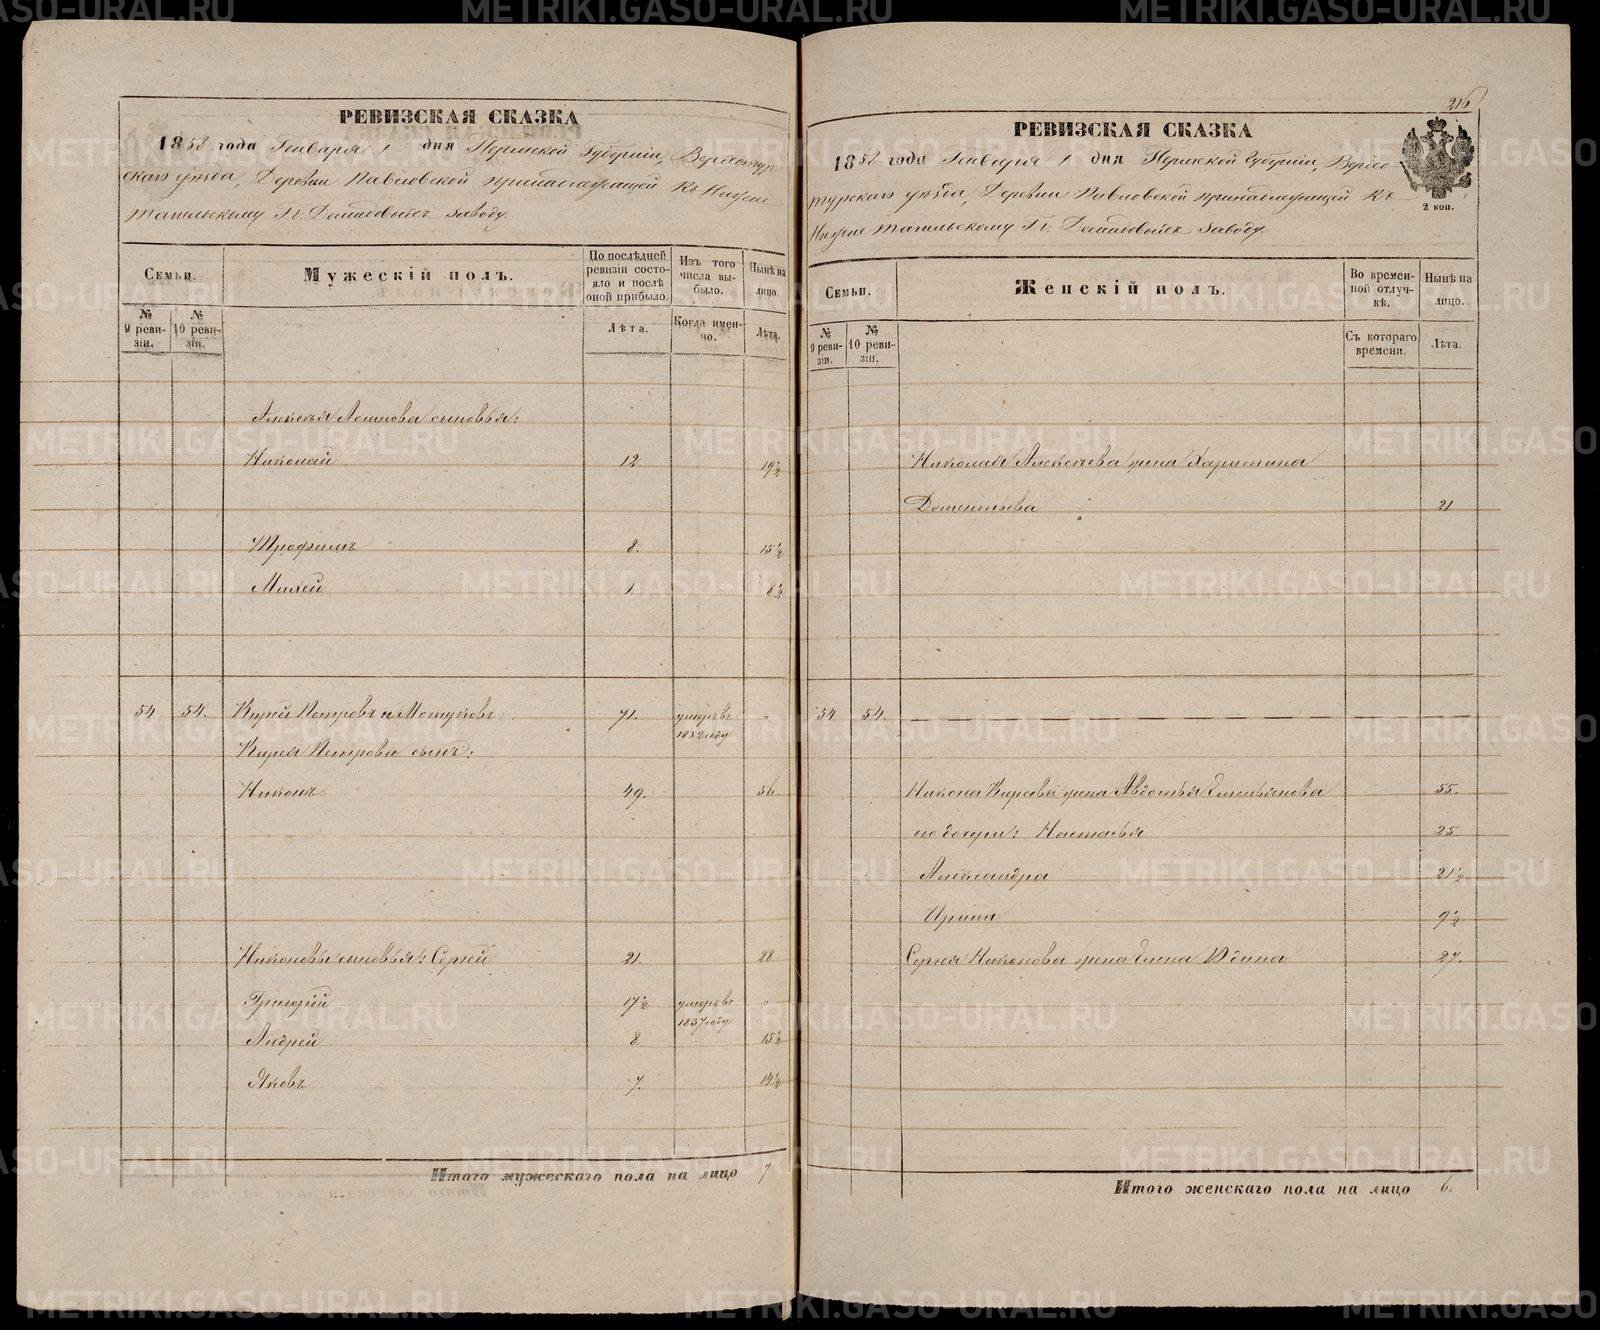 РЕВИЗСКАЯ СКАЗКА
1858 года Генваря 1 дня Пермской Губернии, Верхотур
скаго уѣзда, Деревни Павловской принадлежащей къ Нижне
тагильскому Гг. Демидовыхъ заводу.
Семьи.
Мужескій полъ.
По послѣдней ревизіи состояло и послѣ оной прибыло.
Изъ того числа выбыло.
Нынѣ на лицо.
№ 9 ревизіи.
№ 10 ревизіи.
Лѣта.
Когда именно.
Лѣта.
Алексѣя Логинова сыновья:
Николай 12. 19½
Трофимъ 8. 15½
Михей 1. 8½
54 54. Кирей Петровъ Мотуковъ 71. умеръ въ 1852 году "
Кирея Петрова сынъ:
Никонъ 49. 56
Никоновы сыновья: Сергей 21. 28
Григорий 17½ умеръ въ 1857 году "
Андрей 8 15½
Яковъ 7. 14½
Итого мужескаго пола на лицо 7
216
РЕВИЗСКАЯ СКАЗКА
1858 года Генваря 1 дня Пермской Губернии, Верхо
турскаго уѣзда, Деревни Павловской принадлежащей къ
Нижне тагильскому Гг. Демидовыхъ заводу.
2 коп.
Семьи.
Женскій полъ.
Во временной отлучкѣ.
Нынѣ на лицо.
№ 9 ревизіи.
№ 10 ревизіи.
Съ котораго времени.
Лѣта.
Николая Алексѣева жена Харитина
Дементьева 21
54 54.
Никона Киреева жена Авдотья Емельянова 55.
его дочери: Настасья 25
Александра 21½
Ирина 9½
Сергея Никонова жена Елена 27.
Итого женскаго пола на лицо 6.
METRIKI.GASO-URAL.RU